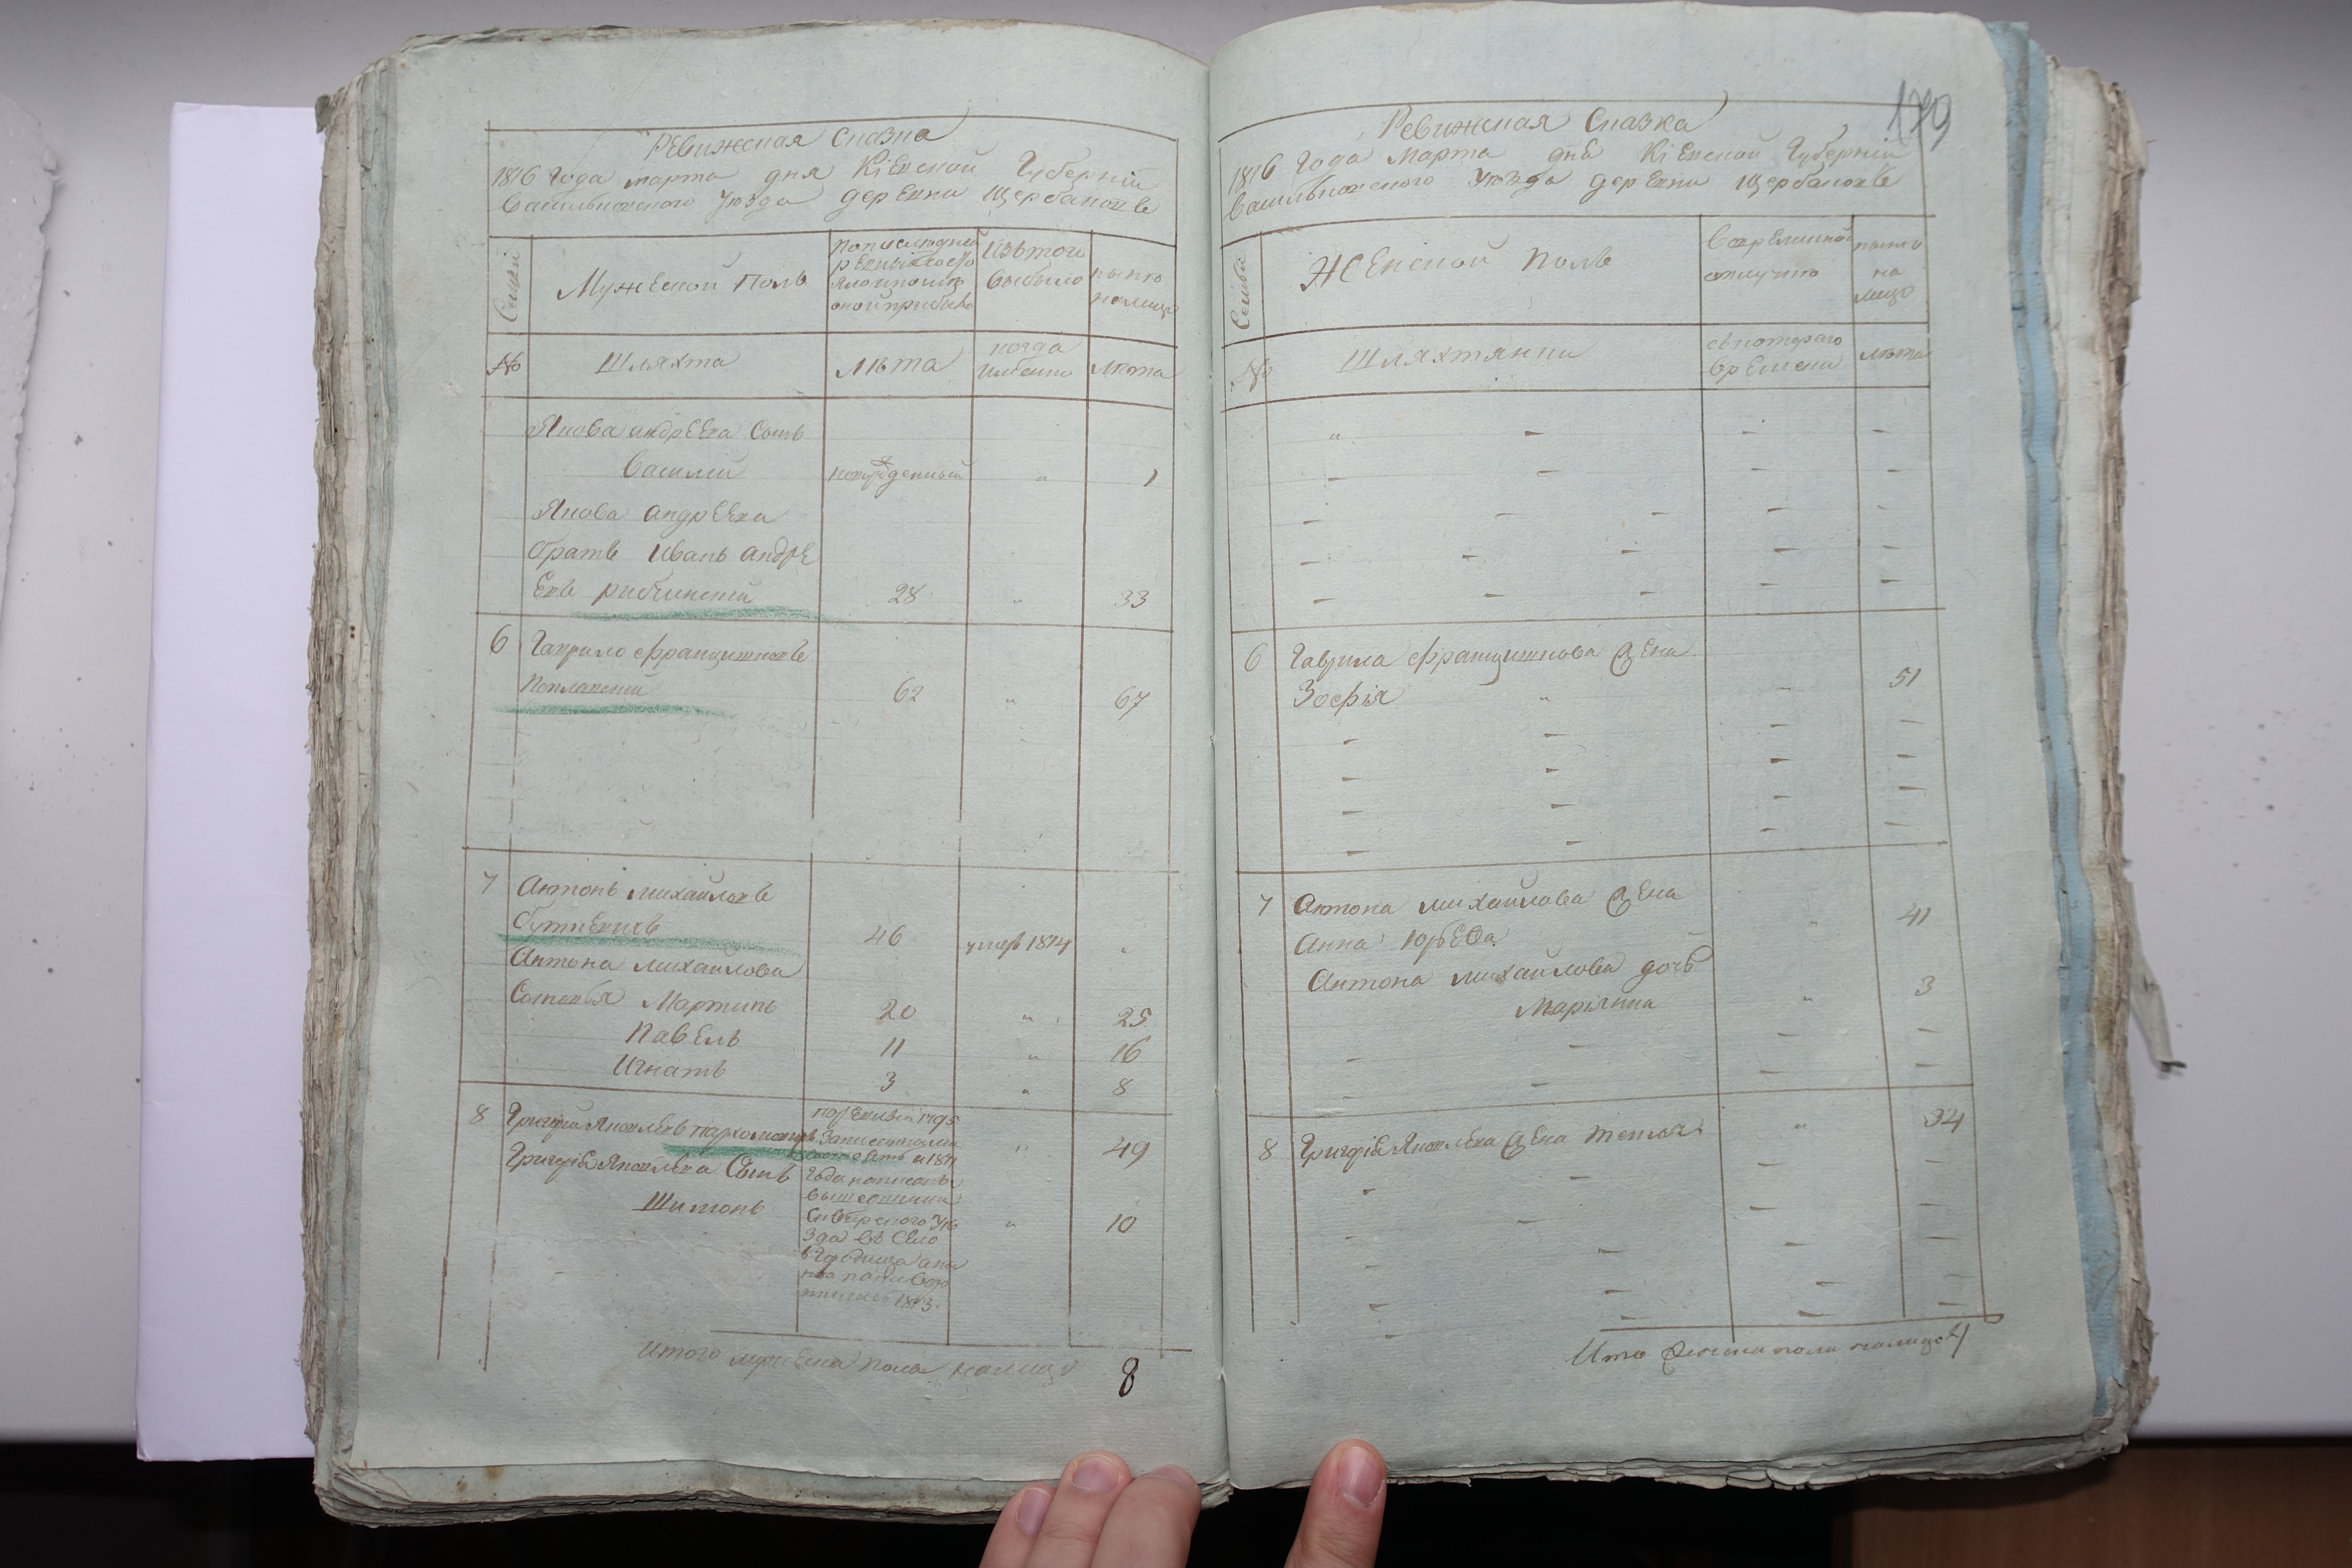 Ревижская Сказка
1816 Года марта дня Кіевской Губерніи
Васильковского Уѣзда деревни Щербановъ
Семьи
Мужеской полъ
По последней ревизіи
Изъ того выбыло
ныне на лицо
№
Шляхта
Лѣта
когда именно
лѣта
Якова андреева Сынъ
Василій новорожденный " 1
Якова андреева
братъ Иванъ андре
евъ рибчинскій 28 " 33
6 Гаврило францишковъ
62 " 67
7 Антонъ михайловъ
46 умеръ 1814 "
Антона михайлова
Сыновья Мартинъ 20 " 25
Павелъ 11 " 16
Игнатъ 3 " 8
8 Григорій Яковлевъ пархомовичъ " 49
Григорія Яковлева Сынъ
Шимонъ " 10
по ревизіи 1795
Итого мужеска пола налицо 8
179
Ревижская Сказка
1816 Года Марта дня Кіевской Губерніи
Васильковского Уѣзда деревни Щербановъ
Семьи
Женской полъ
Вовременной отлучке
ныне на лицо
№
Шляхтянки
съ котораго времени
лѣта
6 Гаврила францишкова жена
Зофія " " 51
7 Антона михайлова жена
Анна Юрьева " 41
Антона михайлова дочь
Маріянна " 3
8 Григорія Яковлева жена " 34
Ито женска пола налицо 4